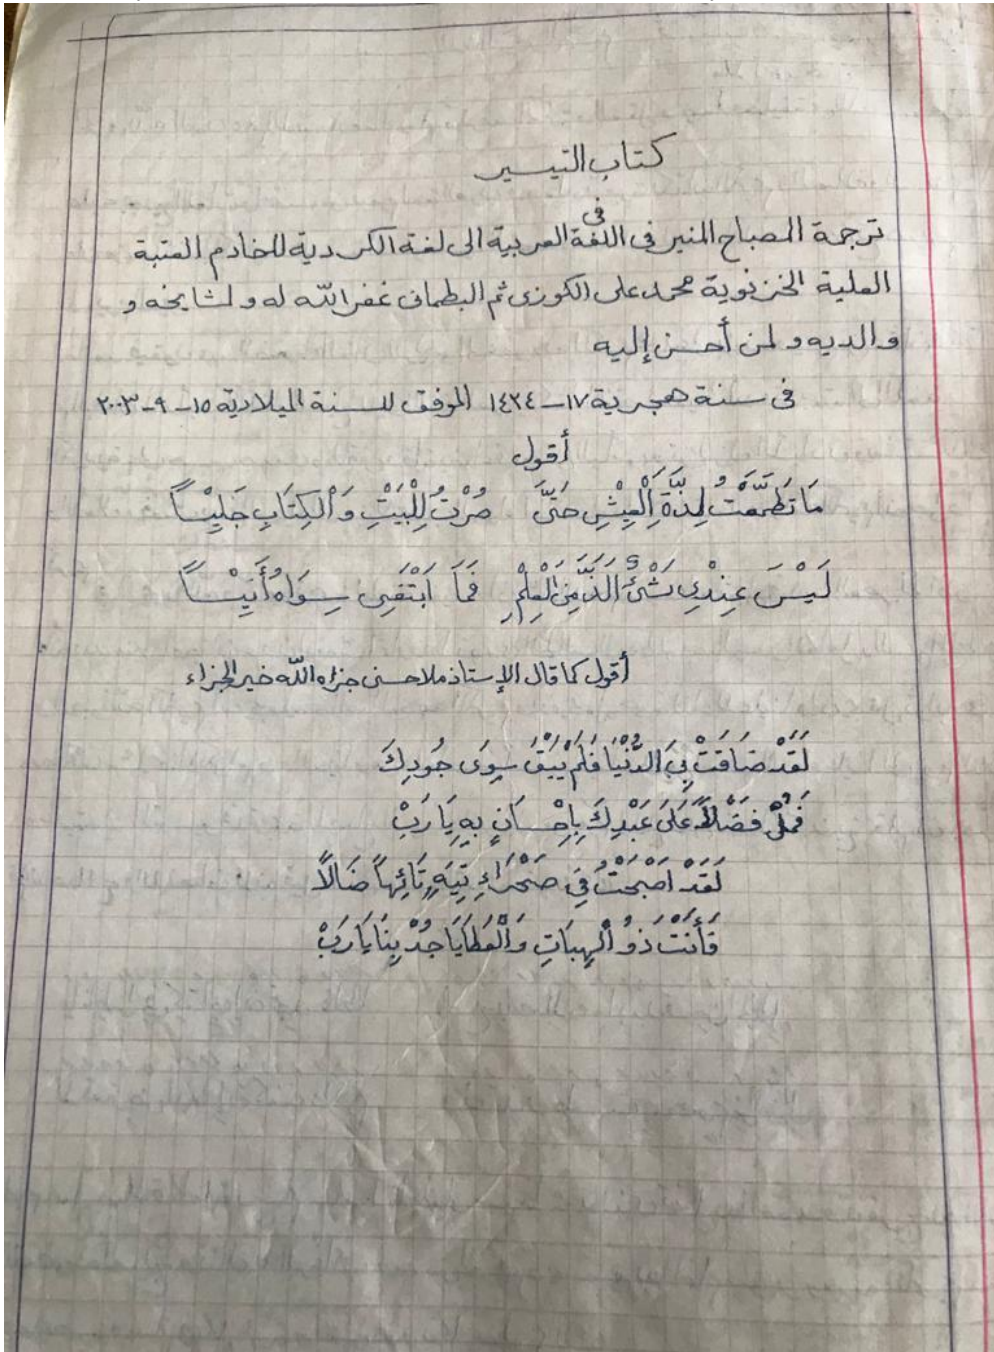 كتاب التيسير
فى
ترجمة المصباح المنير فى اللغة العربية الى لغة الكردية للخادم العتبة
العلية الخزنوية محمد على الكوزى ثم البطمانى غفر الله له ولمشايخه و
والديه ولمن أحسن إليه
فى سنة هجرية ١٧-١٤٢٤ الموفق للسنة الميلادية ١٥-٩-٢٠٠٣
أقول
مَا تَطَعَّمْتُ لِذَّةَ الْعِيْشِ حَتَّى صُرْتُ لِلْبَيْتِ وَالْكِتَابِ جَلِيْسًا
لَيْسَ عِنْدِي شَىْءٌ اَلَذَّ مِنَ الْعِلْمِ فَمَا اَبْتَغِى سِوَاهُ أَنِيْسًا
أقول كما قال الإستاذ ملا حسنى جزاه الله خير الجزاء
لَقَدْ ضَاقَتْ بِيَ الدُّنْيَا فَلَمْ يَبْقَ سِوَى جُودِكَ
فَضْلًا عَلَى عَبْدِكَ بِاِحْسَانٍ بِهِ يَا رَبْ
لَقَدْ اَصْبَحْتُ فِى صَحْرَاءِ تِيَهٍ تَائِهاً ضَالًا
فَأَنْتَ ذُو الْهِبَاتِ وَالْعَطَايَا جُدْ بِنَا يَا رَبْ